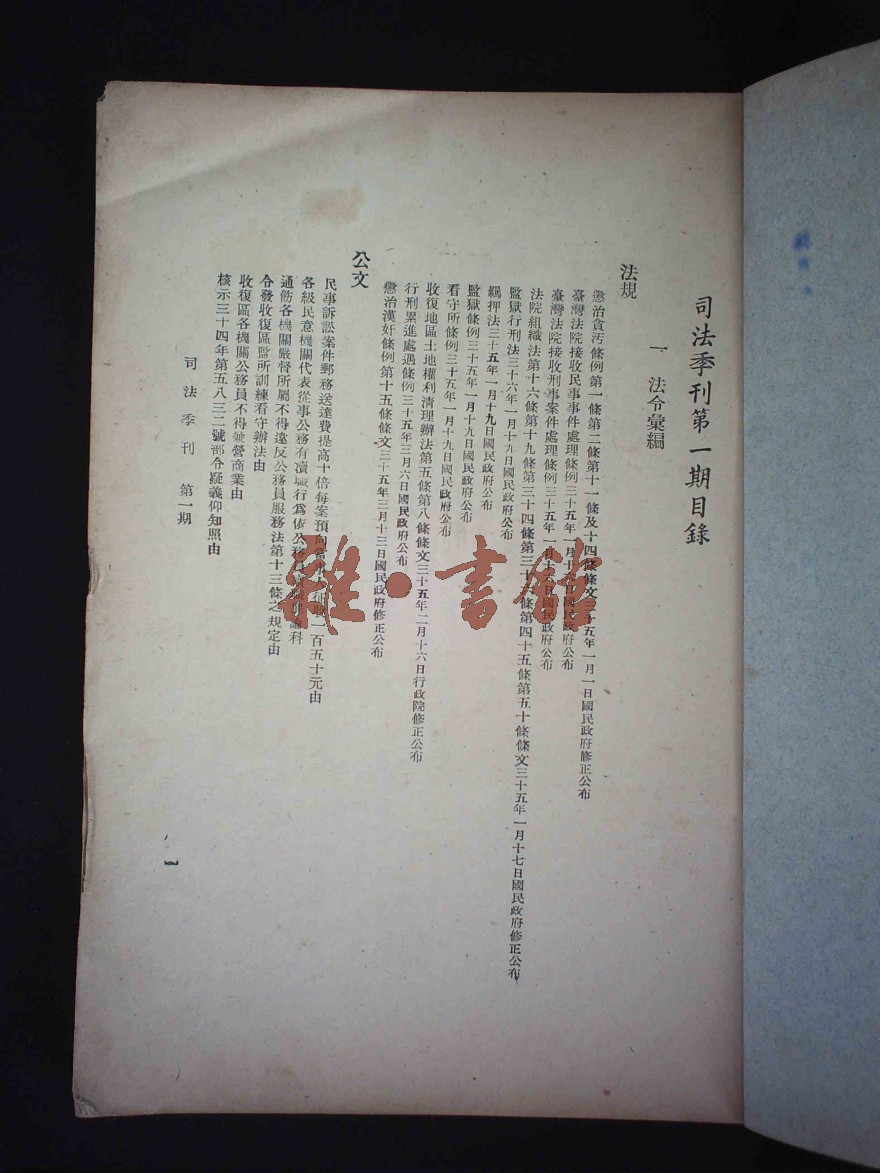 司法季刊第一期目錄
一 法令彙編
法規
懲治貪汚條例第一條第二條第十一條及十四條條文三十五年一月一日國民政府修正公布
臺灣法院接收民事事件處理條例三十五年一月十日國民政府公布
臺灣法院接收刑事案件處理條例三十五年一月十日國民政府公布
法院組織法第十六條第十九條第三十四條第三十六條第四十五條第五十條條文三十五年一月十七日國民政府修正公布
監獄行刑法三十六年一月十九日國民政府公布
羈押法三十五年一月十九日國民政府公布
監獄條例三十五年一月十九日國民政府公布
看守所條例三十五年一月十九日國民政府公布
收復地區土地權利淸理辦法第五條第八條條文三十五年二月十六日行政院修正公布
行刑累進處遇條例三十五年三月六日國民政府公布
懲治漢奸條例第十五條條文三十五年三月十三日國民政府修正公布
公文
民事訴訟案件郵務送達費提高十倍每案預向當事人征收一百五十元由
各級民意機關代表從事公務有瀆職行爲依公務員瀆職罪論科
通飭各機關嚴督所屬不得違反公務員服務法第十三條之規定由
令發收復區監所訓練看守辦法由
收復區各機關公務員不得兼營商業由
核示三十四年第五八三二號部令疑義仰知照由
司法季刊 第一期
一
雅·書館